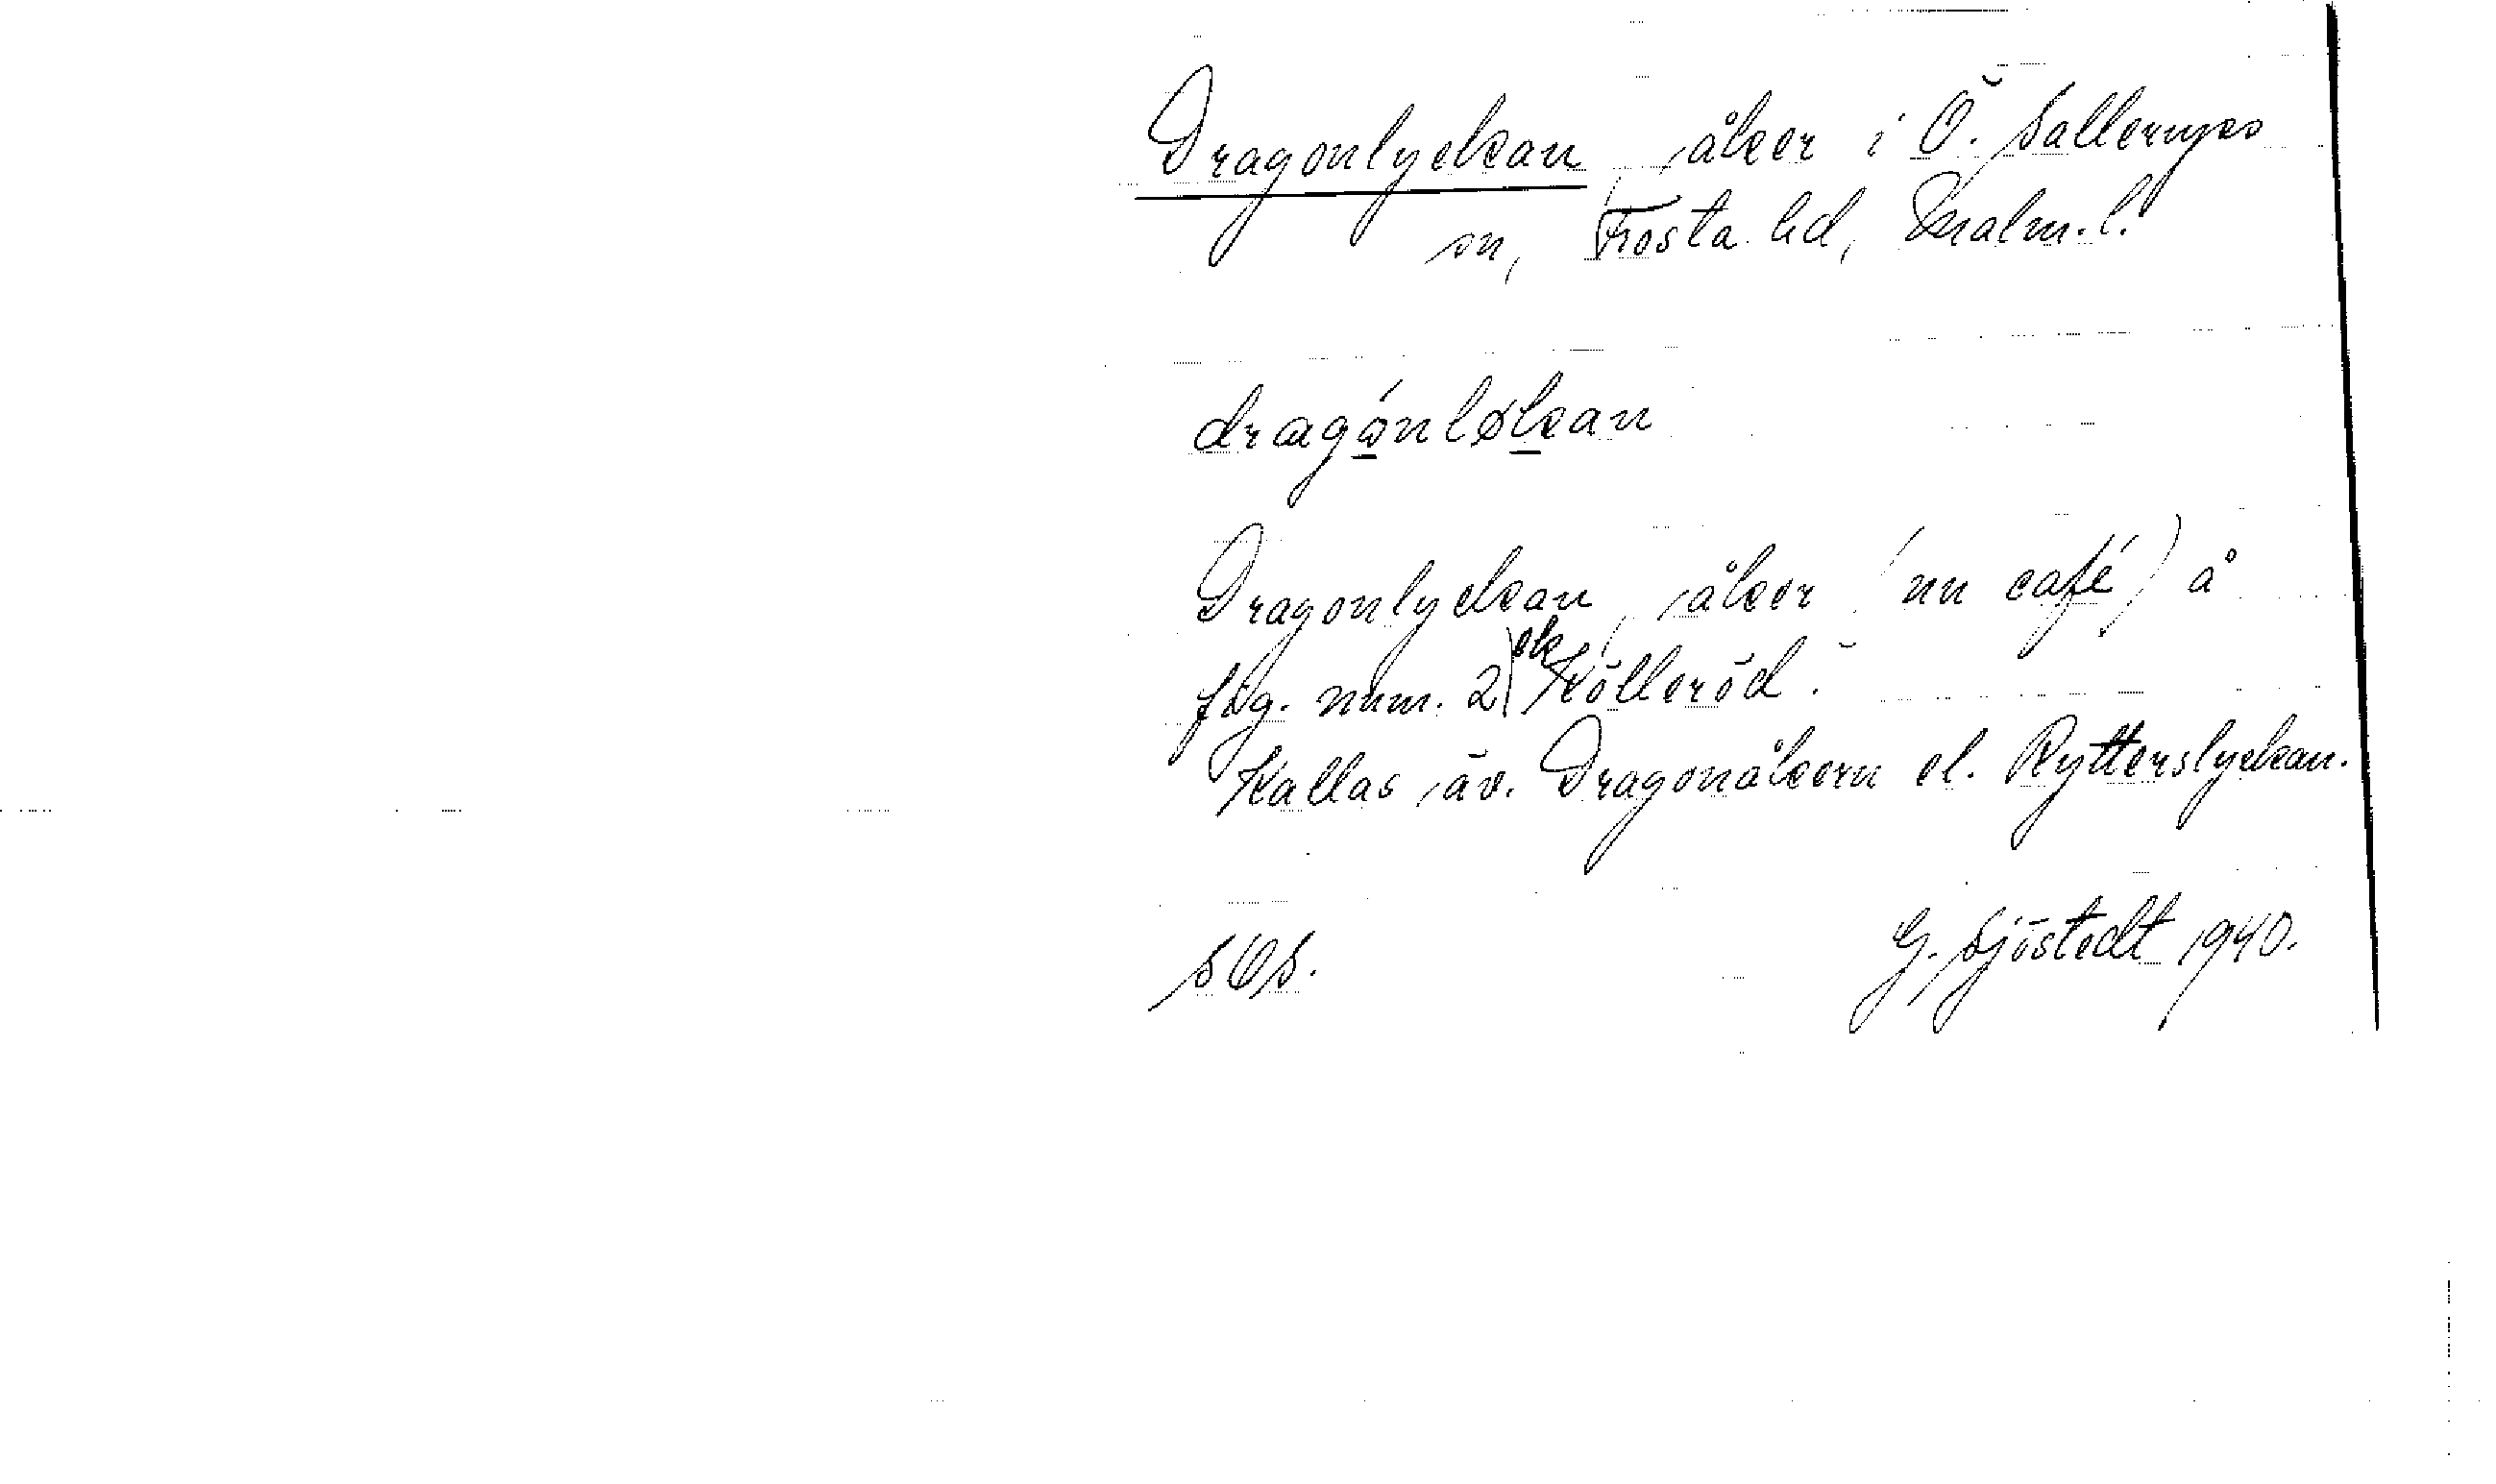 Dragonlyckan, åker i Ö. Sallerups
sn, Frosta hd, Malm. l.
dragónløkan
Dragonlyckan, åker (nu café) å
fåg. num. 2 ek Kölleröd.
Kallas äv. Dragonåkern el. Rytterslyckan.
SOS. G. Sjöstedt 1940.